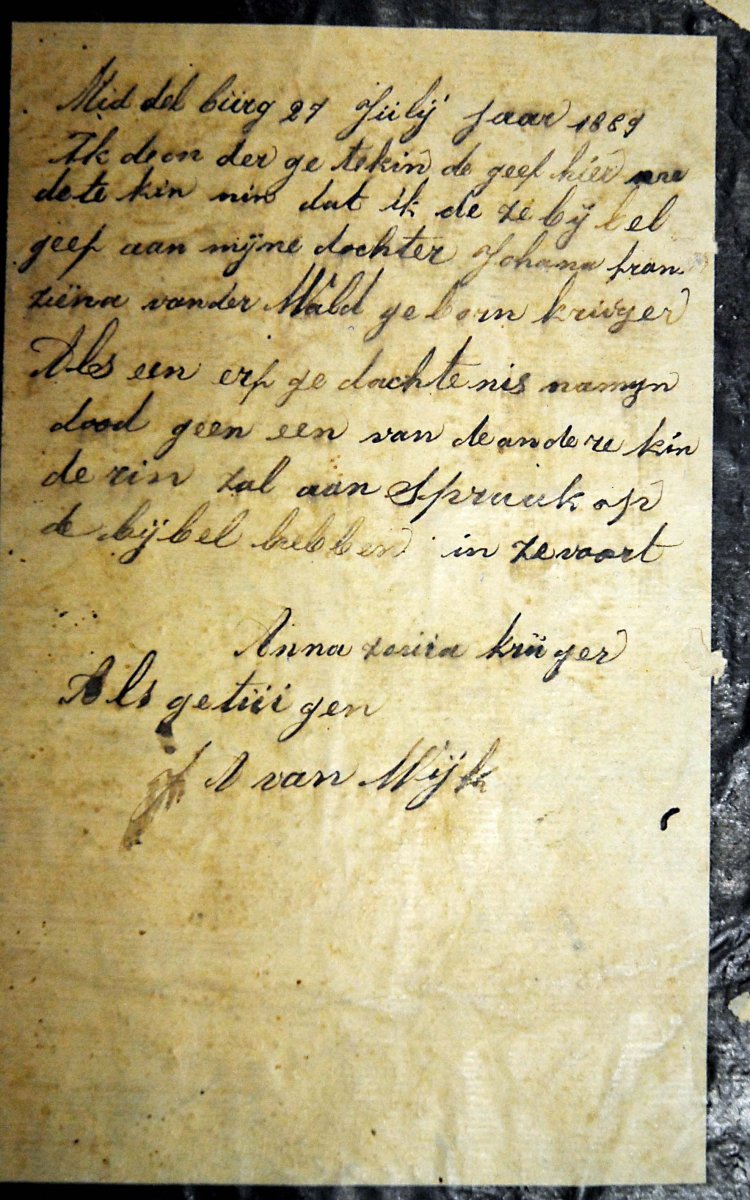 Mid del bürg 27 Jülij jaar 1889
Ik de on der ge tekin de geef hier me
de te kin nin dat ik de ze bij bel
geef aan mijne dochter Johana fran
ziena van der Wald ge born kruger
Als een erf ge dachte nis na myn
dood geen een van de ande re kin
de rin zal aan Spraak op
de bijbel hebben in ze voort
Anna krüger
Als getüi gen
J A van Wijk